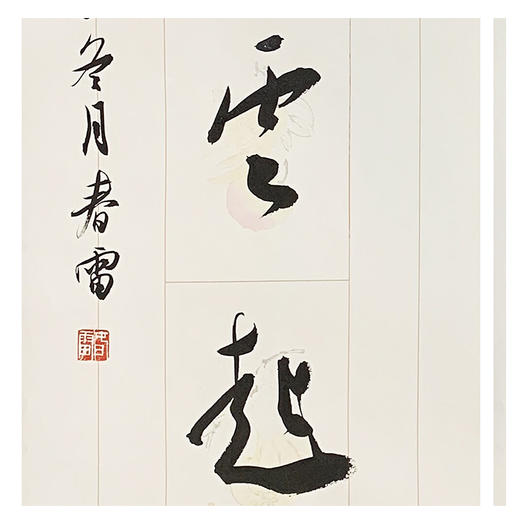 雲起
冬月春雷